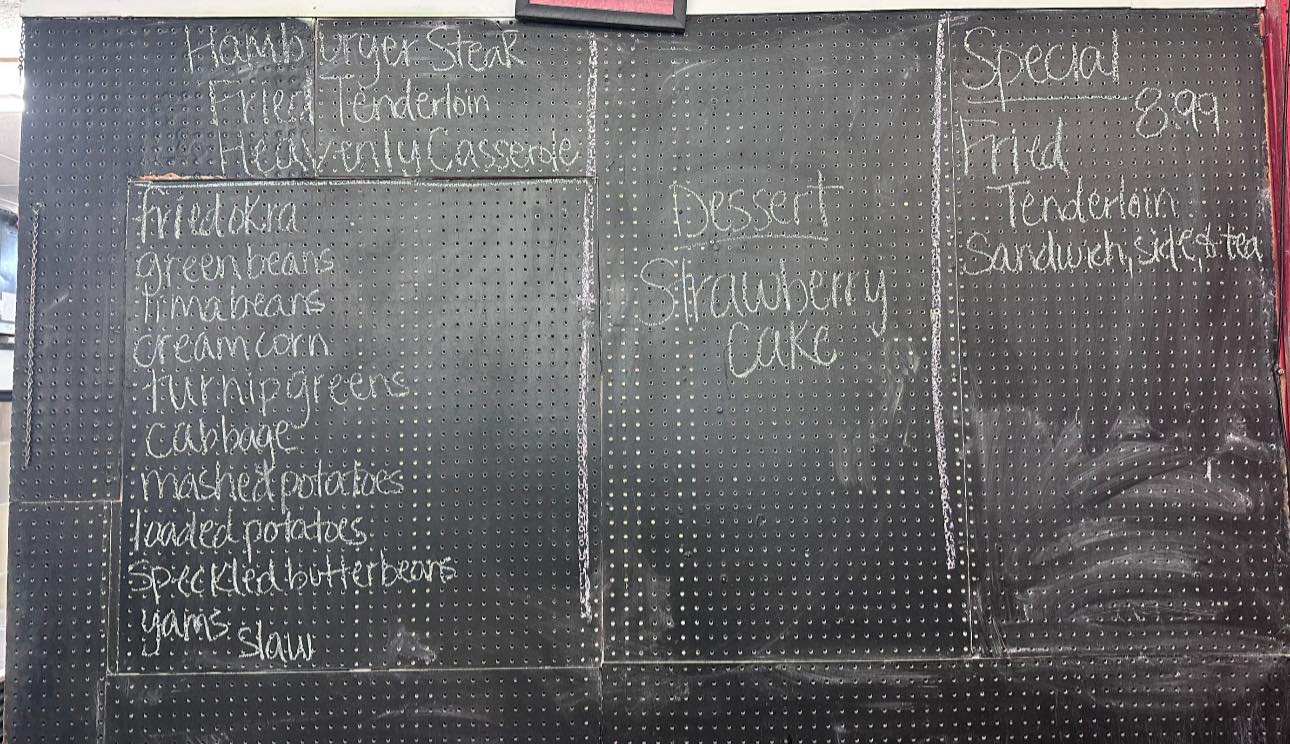 Hamburger Steak
Fried Tenderloin
Heavenly Casserole
fried okra
green beans
lima beans
cream corn
turnip greens
cabbage
mashed potatoes
loaded potatoes
Speckled butterbeans
yams
slaw
Dessert
Strawberry
Cake
Special
8.99
Fried
Tenderloin
Sandwich, side, & tea